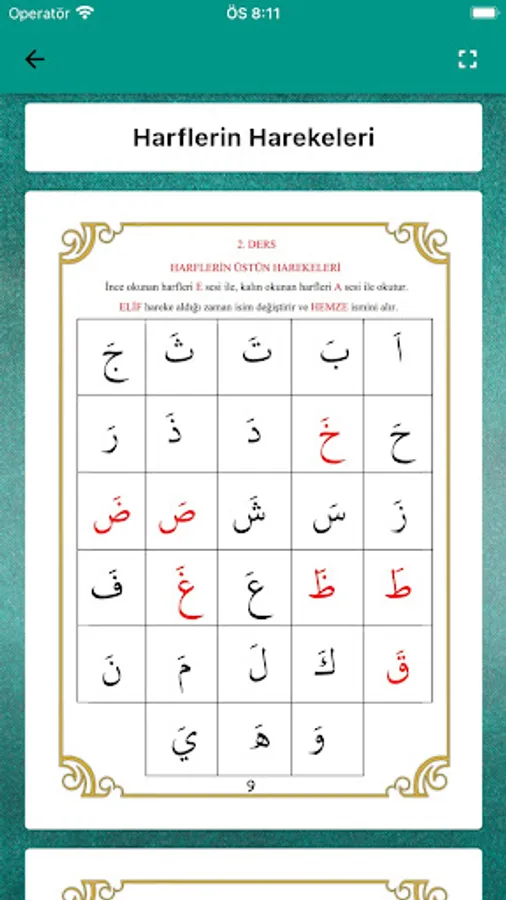 Operatör ÖS 8:11
Harflerin Harekeleri
2. DERS
HARFLERİN ÜSTÜN HAREKELERİ
İnce okunan harfleri E sesi ile, kalın okunan harfleri A sesi ile okutur.
ELİF hareke aldığı zaman isim değiştirir ve HEMZE ismini alır.
اَ بَ تَ ثَ جَ
حَ خَ دَ ذَ رَ
زَ سَ شَ صَ ضَ
طَ ظَ عَ غَ فَ
قَ كَ لَ مَ نَ
وَ هَ يَ
9